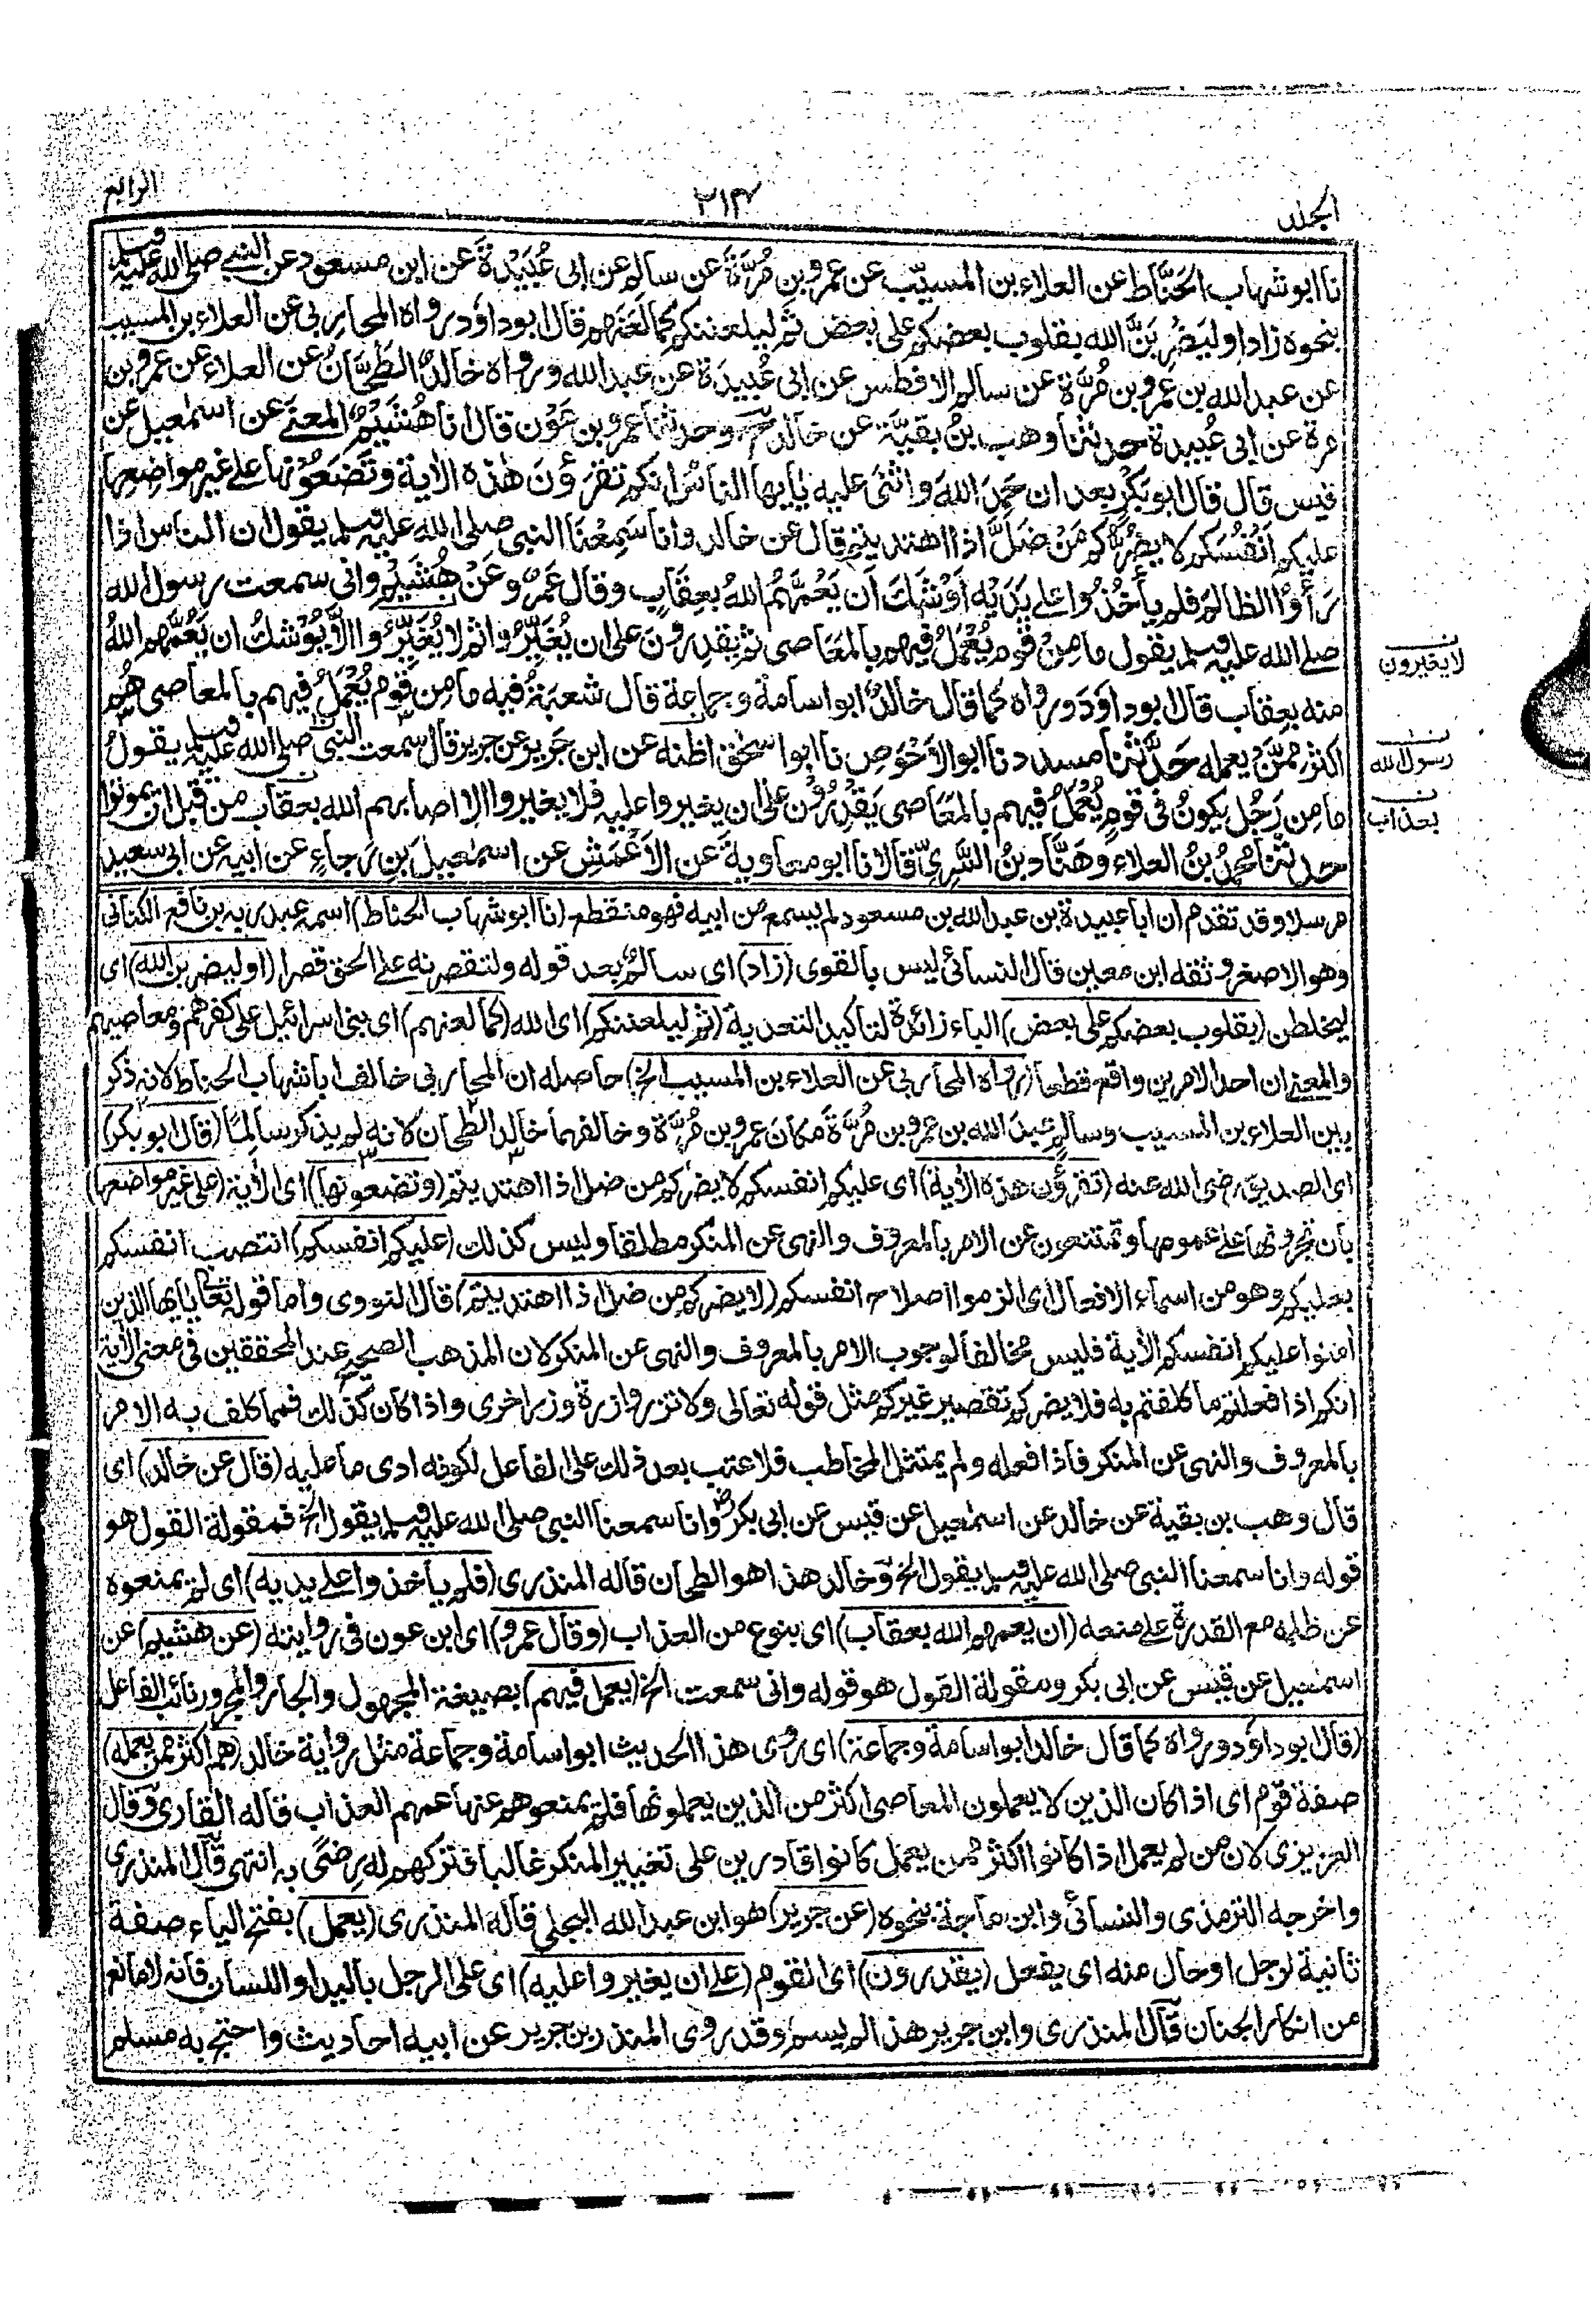 الجلد
٢١٣
الرابع
نا ابو شهاب الحَنَّاط عن العلاء بن المسيّب عن عمرو بن مُرَّةَ عن سالم عن ابى عُبَيْدةَ عن ابن مسعود عن النبى صلى الله عليه وسلم
بنحوه زاد اوليَضْرِبَنَّ الله بقلوب بعضكم على بعض ثم ليلعننكم كما لَعَنَهم قال ابوداؤد رواه المحاربى عن العلاء بن المسيب
عن عبد الله بن عمرو بن مُرَّة عن سالم الافطس عن ابى عُبيدَة عن عبد الله ورواه خالدٌ الطَّحَّانُ عن العلاء عن عمرو بن
مرة عن ابى عُبيدة حدثنا وهب بنُ بقيَّة عن خالد ح وحدثنا عمرو بن عَوْن قال انا هُشَيْمٌ المعنَى عن اسمٰعيل عن
قيس قال قال ابو بَكْرٍ بعد ان حَمِدَ اللهَ واثنٰى عليه يٰايها الناسُ انكم تقرؤنَ هٰذه الاٰية وتَضَعُوْنها على غير مواضِعِها
عليكم اَنْفُسَكم لا يضُرُّكم مَنْ ضَلَّ اذا اهتديتم قال عن خالد وانا سَمِعْنَا النبى صلى الله عليه وسلم يقول ان الناس اذا
رَأَوُا الظالمَ فلم يأخُذُوا على يَدَيْه اَوْشَكَ اَن يَعُمَّهُم اللهُ بعِقَابٍ وقال عَمرٌو عَنْ هُشَيْمٍ وانى سمعت رسول الله
صلى الله عليه وسلم يقول ما مِنْ قومٍ يُعْمَلُ فيهم بالمَعَاصى ثم يَقْدِرونَ على ان يُغَيِّرُوا ثم لا يُغَيِّرُوا الَّا يُوْشكُ ان يَعُمَّهم اللهُ
منه بعِقاب قال ابوداؤدَ ورواه كما قال خالدٌ ابو اسامة وجماعة قال شعبَةُ فيه ما من قَوم يُعْمَلُ فيهم بالمعاصى هُم
اكثرُ مِمَّنْ يعمله حَدَّثَنا مسدد نا ابوالاَحْوَصِ نا ابو اسحٰق اظنه عن ابن جَرير عن جرير قال سمعت النبى صلى الله عليه وسلم يقولُ
ما مِن رَجُل يكونُ فى قومٍ يُعْمَلُ فيهم بالمَعَاصى يَقْدِرُوْن على ان يغيروا عليه فلا يغيروا الا اصابهم الله بعقاب من قبل ان يموتوا
حدثنا محمدُ بنُ العلاء وهَنَّاد بنُ السَّرِىّ قالا نا ابو معاويةَ عن الاَعْمَشِ عن اسمٰعيلَ بنِ رَجاءٍ عن ابيه عن ابى سعيد
لا يغيرون
رسول الله
بعذاب
مرسلا وقد تقدم ان ابا عبيدة بن عبد الله بن مسعود لم يسمع من ابيه فهو منقطع (نا ابو شهاب الحناط) اسمه عبد ربه بن نافع الكنانى
وهو الاصغر وثقه ابن معين قال النسائى ليس بالقوى (زاد) اى سالم بعد قوله ولتقصرنه على الحق قصرا (اوليضربن الله) اى
ليخلطن (بقلوب بعضكم على بعض) الباء زائدة لتاكيد التعدية (ثم ليلعننكم) اى الله (كما لعنهم) اى بنى اسرائيل على كفرهم ومعاصيهم
والمعنى ان احد الامرين واقع قطعا (رواه المحاربى عن العلاء بن المسيب الخ) حاصله ان المحاربى خالف ابا شهاب الحناط لانه ذكر
بين العلاء بن المسيب وسالم عبدَ الله بن عمرو بن مُرَّة مكان عمرو بن مُرَّة وخالفهما خالد الطحان لانه لم يذكر سالما (قال ابو بكر)
اى الصديق رضى الله عنه (تقرؤن هذه الاٰية) اى عليكم انفسكم لا يضركم من ضل اذا اهتديتم (وتضعونها) اى الاٰية (على غير مواضعها)
بان تجرونها على عمومها وتمتنعون عن الامر بالمعروف والنهى عن المنكر مطلقا وليس كذلك (عليكم انفسكم) انتصب انفسكم
بعليكم وهو من اسماء الافعال اى الزموا اصلاح انفسكم (لا يضركم من ضل اذا اهتديتم) قال النووى واما قوله تعالىٰ يايها الذين
اٰمنوا عليكم انفسكم الاٰية فليس مخالفا لوجوب الامر بالمعروف والنهى عن المنكر لان المذهب الصحيح عند المحققين فى معنى الاٰية
انكم اذا فعلتم ما كلفتم به فلا يضركم تقصير غيركم مثل قوله تعالى ولا تزر وازرة وزر اخرى واذا كان كذلك فمما كلف به الامر
بالمعروف والنهى عن المنكر فاذا فعله ولم يمتثل المخاطب فلا عتب بعد ذلك على الفاعل لكونه ادى ما عليه (قال عن خالد) اى
قال وهب بن بقية عن خالد عن اسمٰعيل عن قيس عن ابى بكر وانا سمعنا النبى صلى الله عليه وسلم يقول الخ فمقولة القول هو
قوله وانا سمعنا النبى صلى الله عليه وسلم يقول الخ وخالد هذا هو الطحان قاله المنذرى (فلم ياخذوا على يديه) اى لم يمنعوه
عن ظلمه مع القدرة على منعه (ان يعمهم الله بعقاب) اى بنوع من العذاب (وقال عمرو) اى ابن عون فى روايته (عن هشيم) عن
اسمٰعيل عن قيس عن ابى بكر ومقولة القول هو قوله وانى سمعت الخ (يعمل فيهم) بصيغة المجهول والجار والمجرور نائب الفاعل
(قال ابوداؤد ورواه كما قال خالد ابو اسامة وجماعة) اى روى هذا الحديث ابو اسامة وجماعة مثل رواية خالد (هم اكثر ممن يعمله)
صفة قوم اى اذا كان الذين لا يعملون المعاصى اكثر من الذين يعملونها فلم يمنعوهم عنها عمهم العذاب قاله القارى وقال
العزيزى لان من لم يعمل اذا كانوا اكثر ممن يعمل كانوا قادرين على تغيير المنكر غالبا فتركهم له رضًى به انتهى قال المنذرى
واخرجه الترمذى والنسائى وابن ماجة بنحوه (عن جرير) هو ابن عبد الله البجلى قاله المنذرى (يعمل) بفتح الياء صفة
ثانية لرجل او حال منه اى يفعل (يقدرون) اى القوم (على ان يغيروا عليه) اى على الرجل باليد او اللسان فانه لا مانع
من انكار الجنان قال المنذرى وابن جرير هذا لم يسم وقد روى المنذر بن جرير عن ابيه احاديث واحتج به مسلم